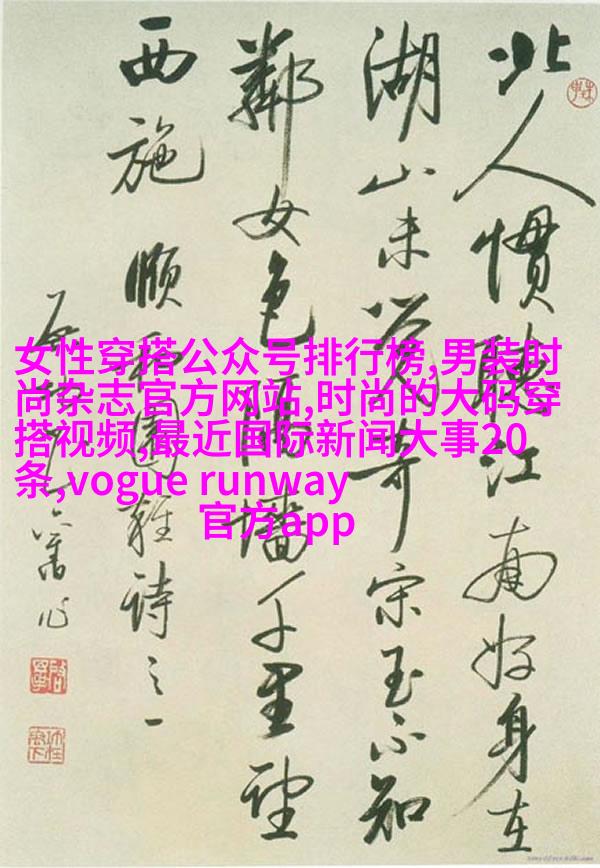 北人慣聽江南好身在
湖山未覺奇宋玉不知
鄰女色隔墻千里望
西施 頤和園雜詩之一
舊作
女性穿搭公众号排行榜,男装时
尚杂志官方网站,时尚的大码穿
搭视频,最近国际新闻大事20
条,vogue runway
官方app